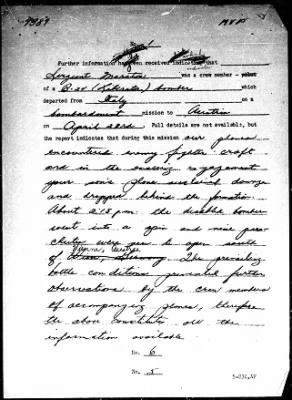 7789 MVP
Further information has been received indicating that
Sergeant was a crew member
of a B-24 (Liberator) bomber which
departed from Italy on a
bombardment mission to Austria
on April 23rd Full details are not available, but
the report indicates that during this mission our planes
encountered enemy fighter craft
and in the ensuing engagement
your son's plane sustained damage
and dropped behind the formation.
About 2:15 p.m. the disabled bomber
went into a spin and nine para-
chutes were seen to open south
of Vienna, Austria. The prevailing
battle conditions prevented further
observations by the crew members
of accompanying planes, therefore
the above constitutes all the
information available
No. 6
No. 5